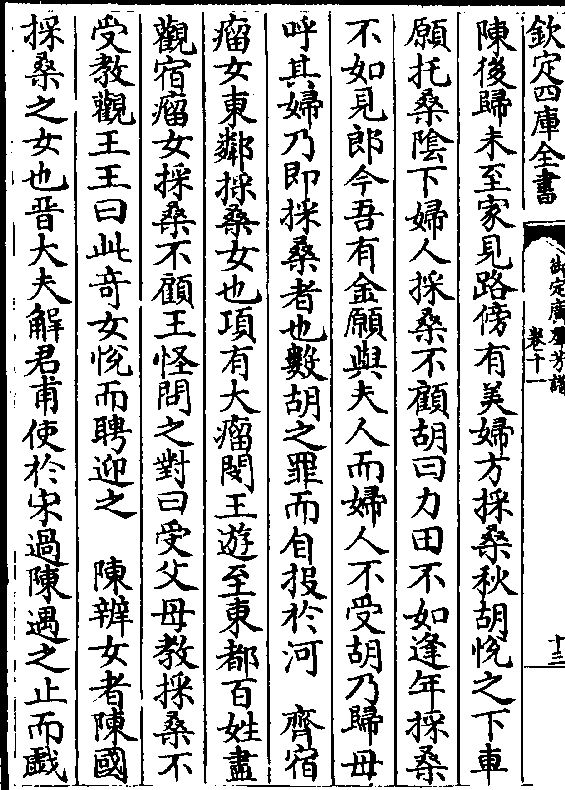 欽定四庫全書
御定廣羣芳譜
卷十一
十三
陳後歸未至家見路傍有美婦方採桑秋胡悅之下車
願托桑陰下婦人採桑不顧胡曰力田不如逢年採桑
不如見郎今吾有金願與夫人而婦人不受胡乃歸母
呼其婦乃即採桑者也數胡之罪而自投於河　齊宿
瘤女東鄰採桑女也項有大瘤閔王遊至東都百姓盡
觀宿瘤女採桑不顧王怪問之對曰受父母教採桑不
受教觀王王曰此奇女悅而聘迎之　陳辨女者陳國
採桑之女也晉大夫解君甫使於宋過陳遇之止而戲